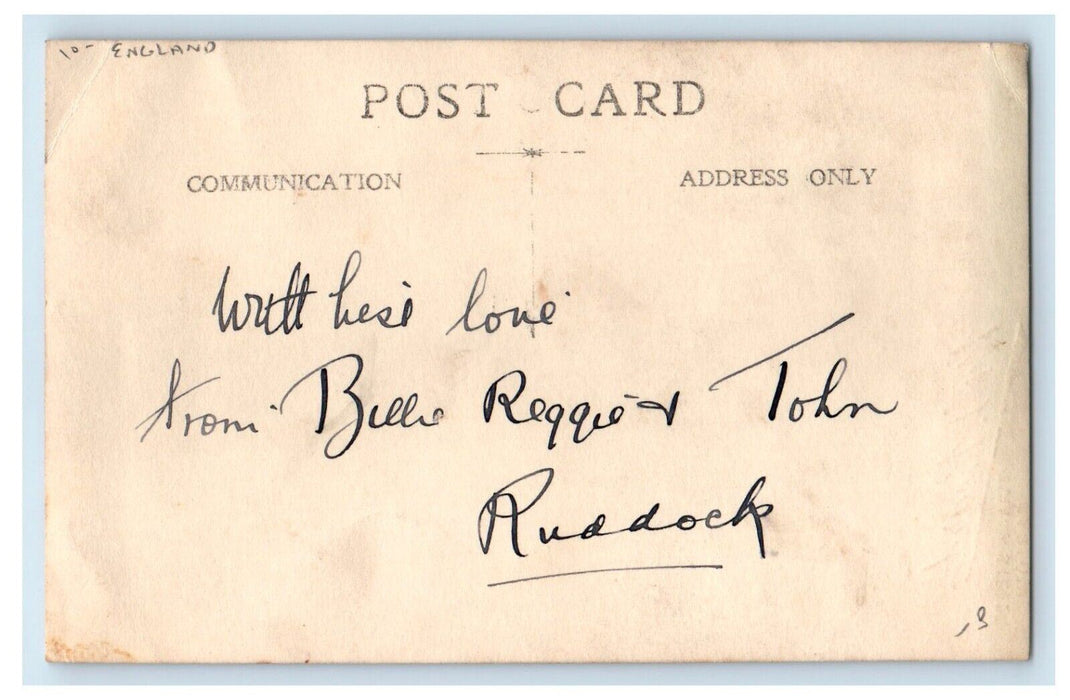 10- ENGLAND
POST CARD
COMMUNICATION
ADDRESS ONLY
With best love
from Billie Reggie & John
Ruddock